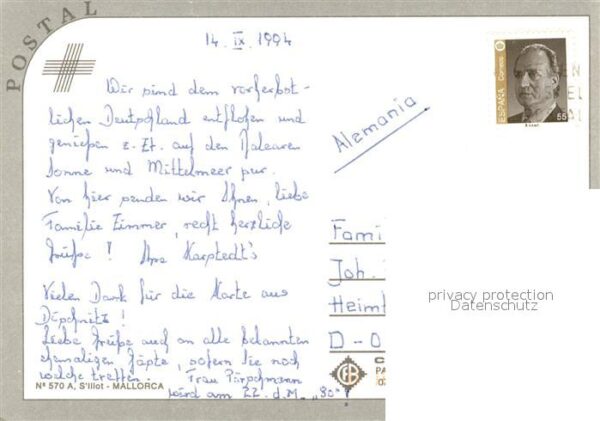 POSTAL
14. IX. 1994
Wir sind dem vorherbst-
lichen Deutschland entflohen und
genießen z. Zt. auf den Balearen
Sonne und Mittelmeer pur.
Von hier senden wir Ihnen, liebe
Familie Zimmer, recht herzliche
Grüße! Ihre Karstedt's
Vielen Dank für die Karte aus
Liebe Grüße auch an alle bekannten
ehemaligen Gäste, sofern Sie noch
welche treffen. Frau
wird am 22. d.M. "80"!
Nº 570 A, S'Illot - MALLORCA
Alemania
ESPAÑA
Correos
55
Fami
Joh.
Heim
D-0
privacy protection
Datenschutz